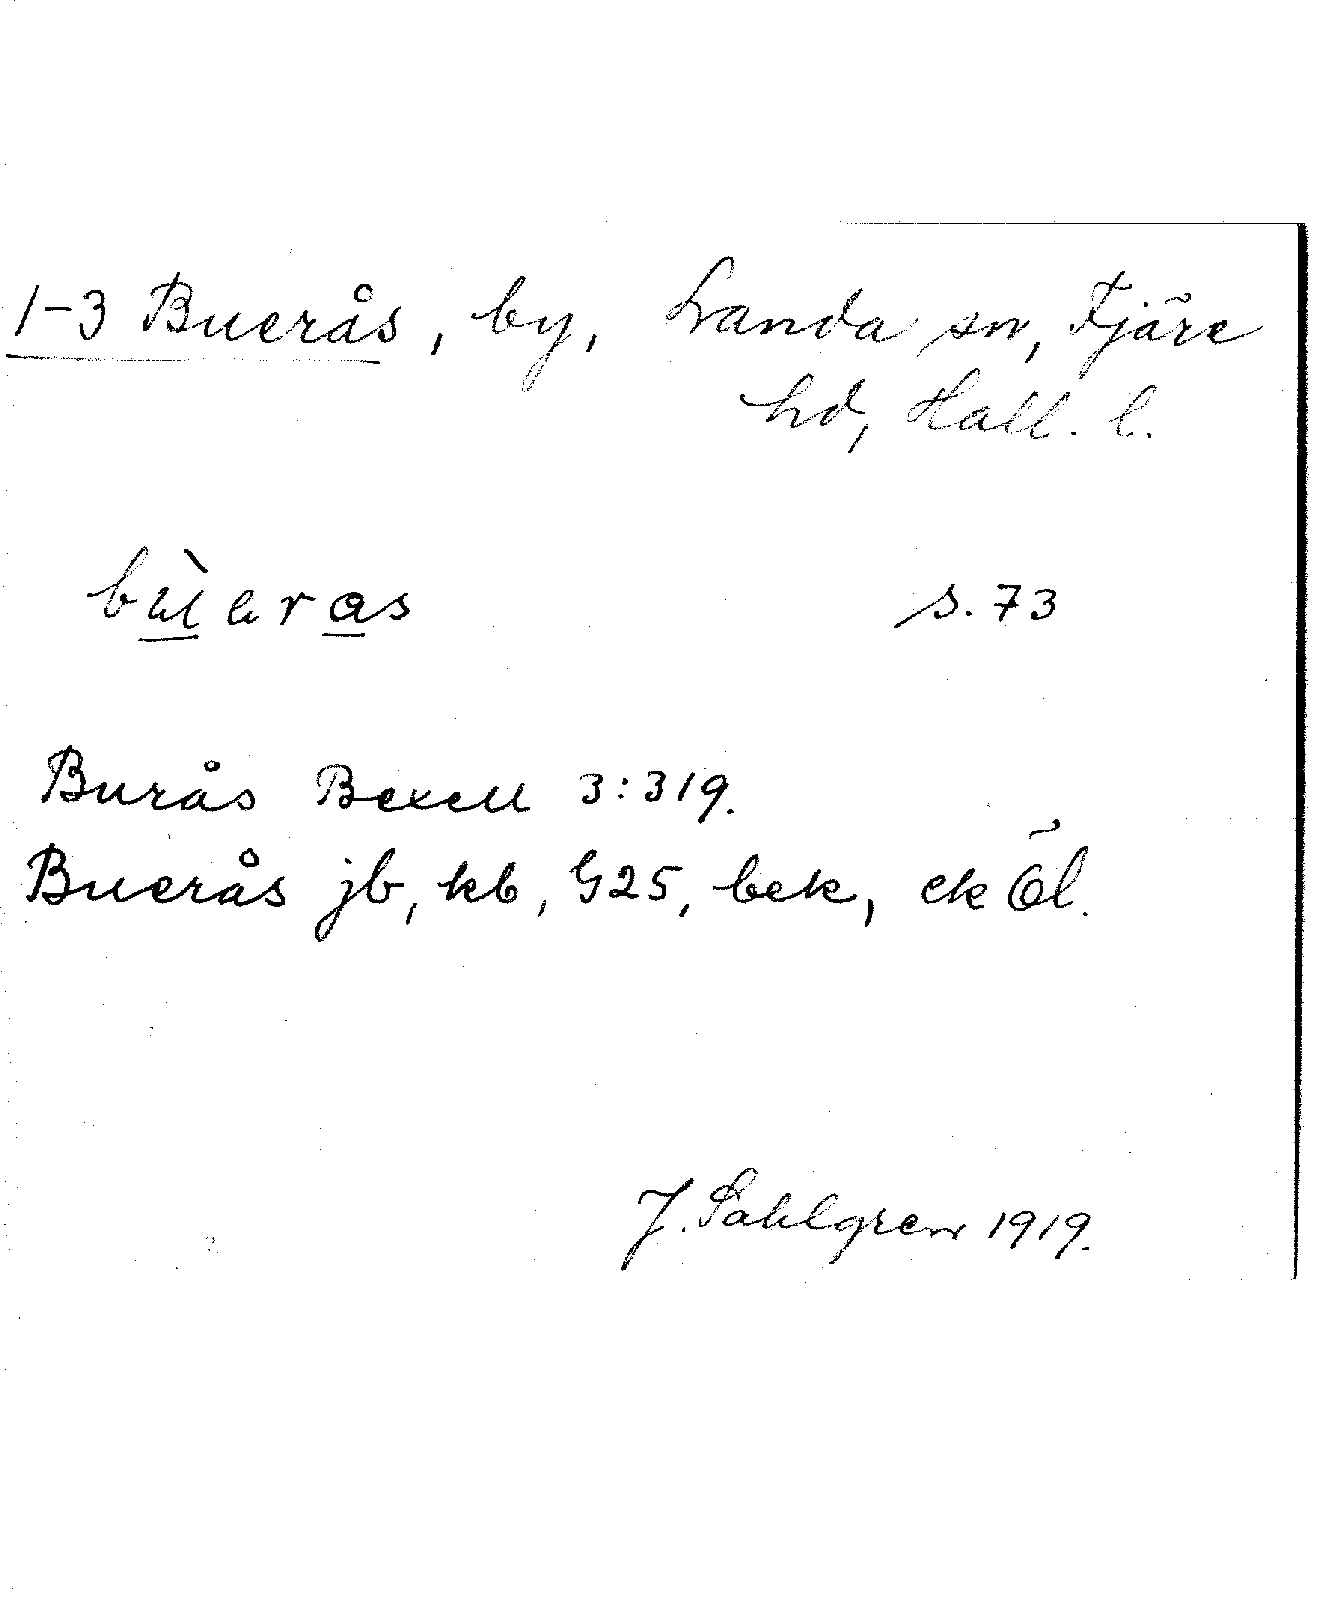 1-3 Buerås, by, Landa sn, Fjäre
hd, Hall. l.
bùeras s. 73
Burås Bexell 3:319.
Buerås jb, kb, G25, bek, ek Öl.
J. Sahlgren 1919.